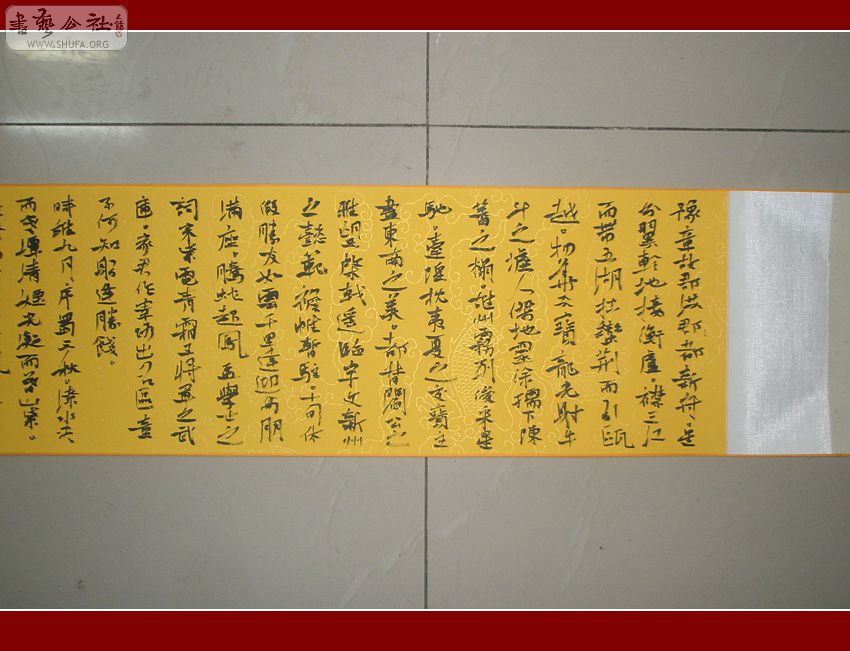 書藝公社
WWW.SHUFA.ORG
豫章故郡洪郡都新府。星
分翼軫地接衡廬。襟三江
而帶五湖控蠻荊而引甌
越。物華天寶龍光射牛
斗之墟人傑地靈徐孺下陳
蕃之榻。雄州霧列俊采星
馳。臺隍枕夷夏之交賓主
盡東南之美。都督閻公之
雅望棨戟遙臨宇文新州
之懿範襜帷暫駐。十旬休
假勝友如雲千里逢迎高朋
滿座。騰蛟起鳳孟學士之
詞宗紫電青霜王將軍之武
庫。家君作宰路出名區童
子何知躬逢勝餞。
時維九月。序屬三秋。潦水尽
而寒潭清煙光凝而暮山紫。